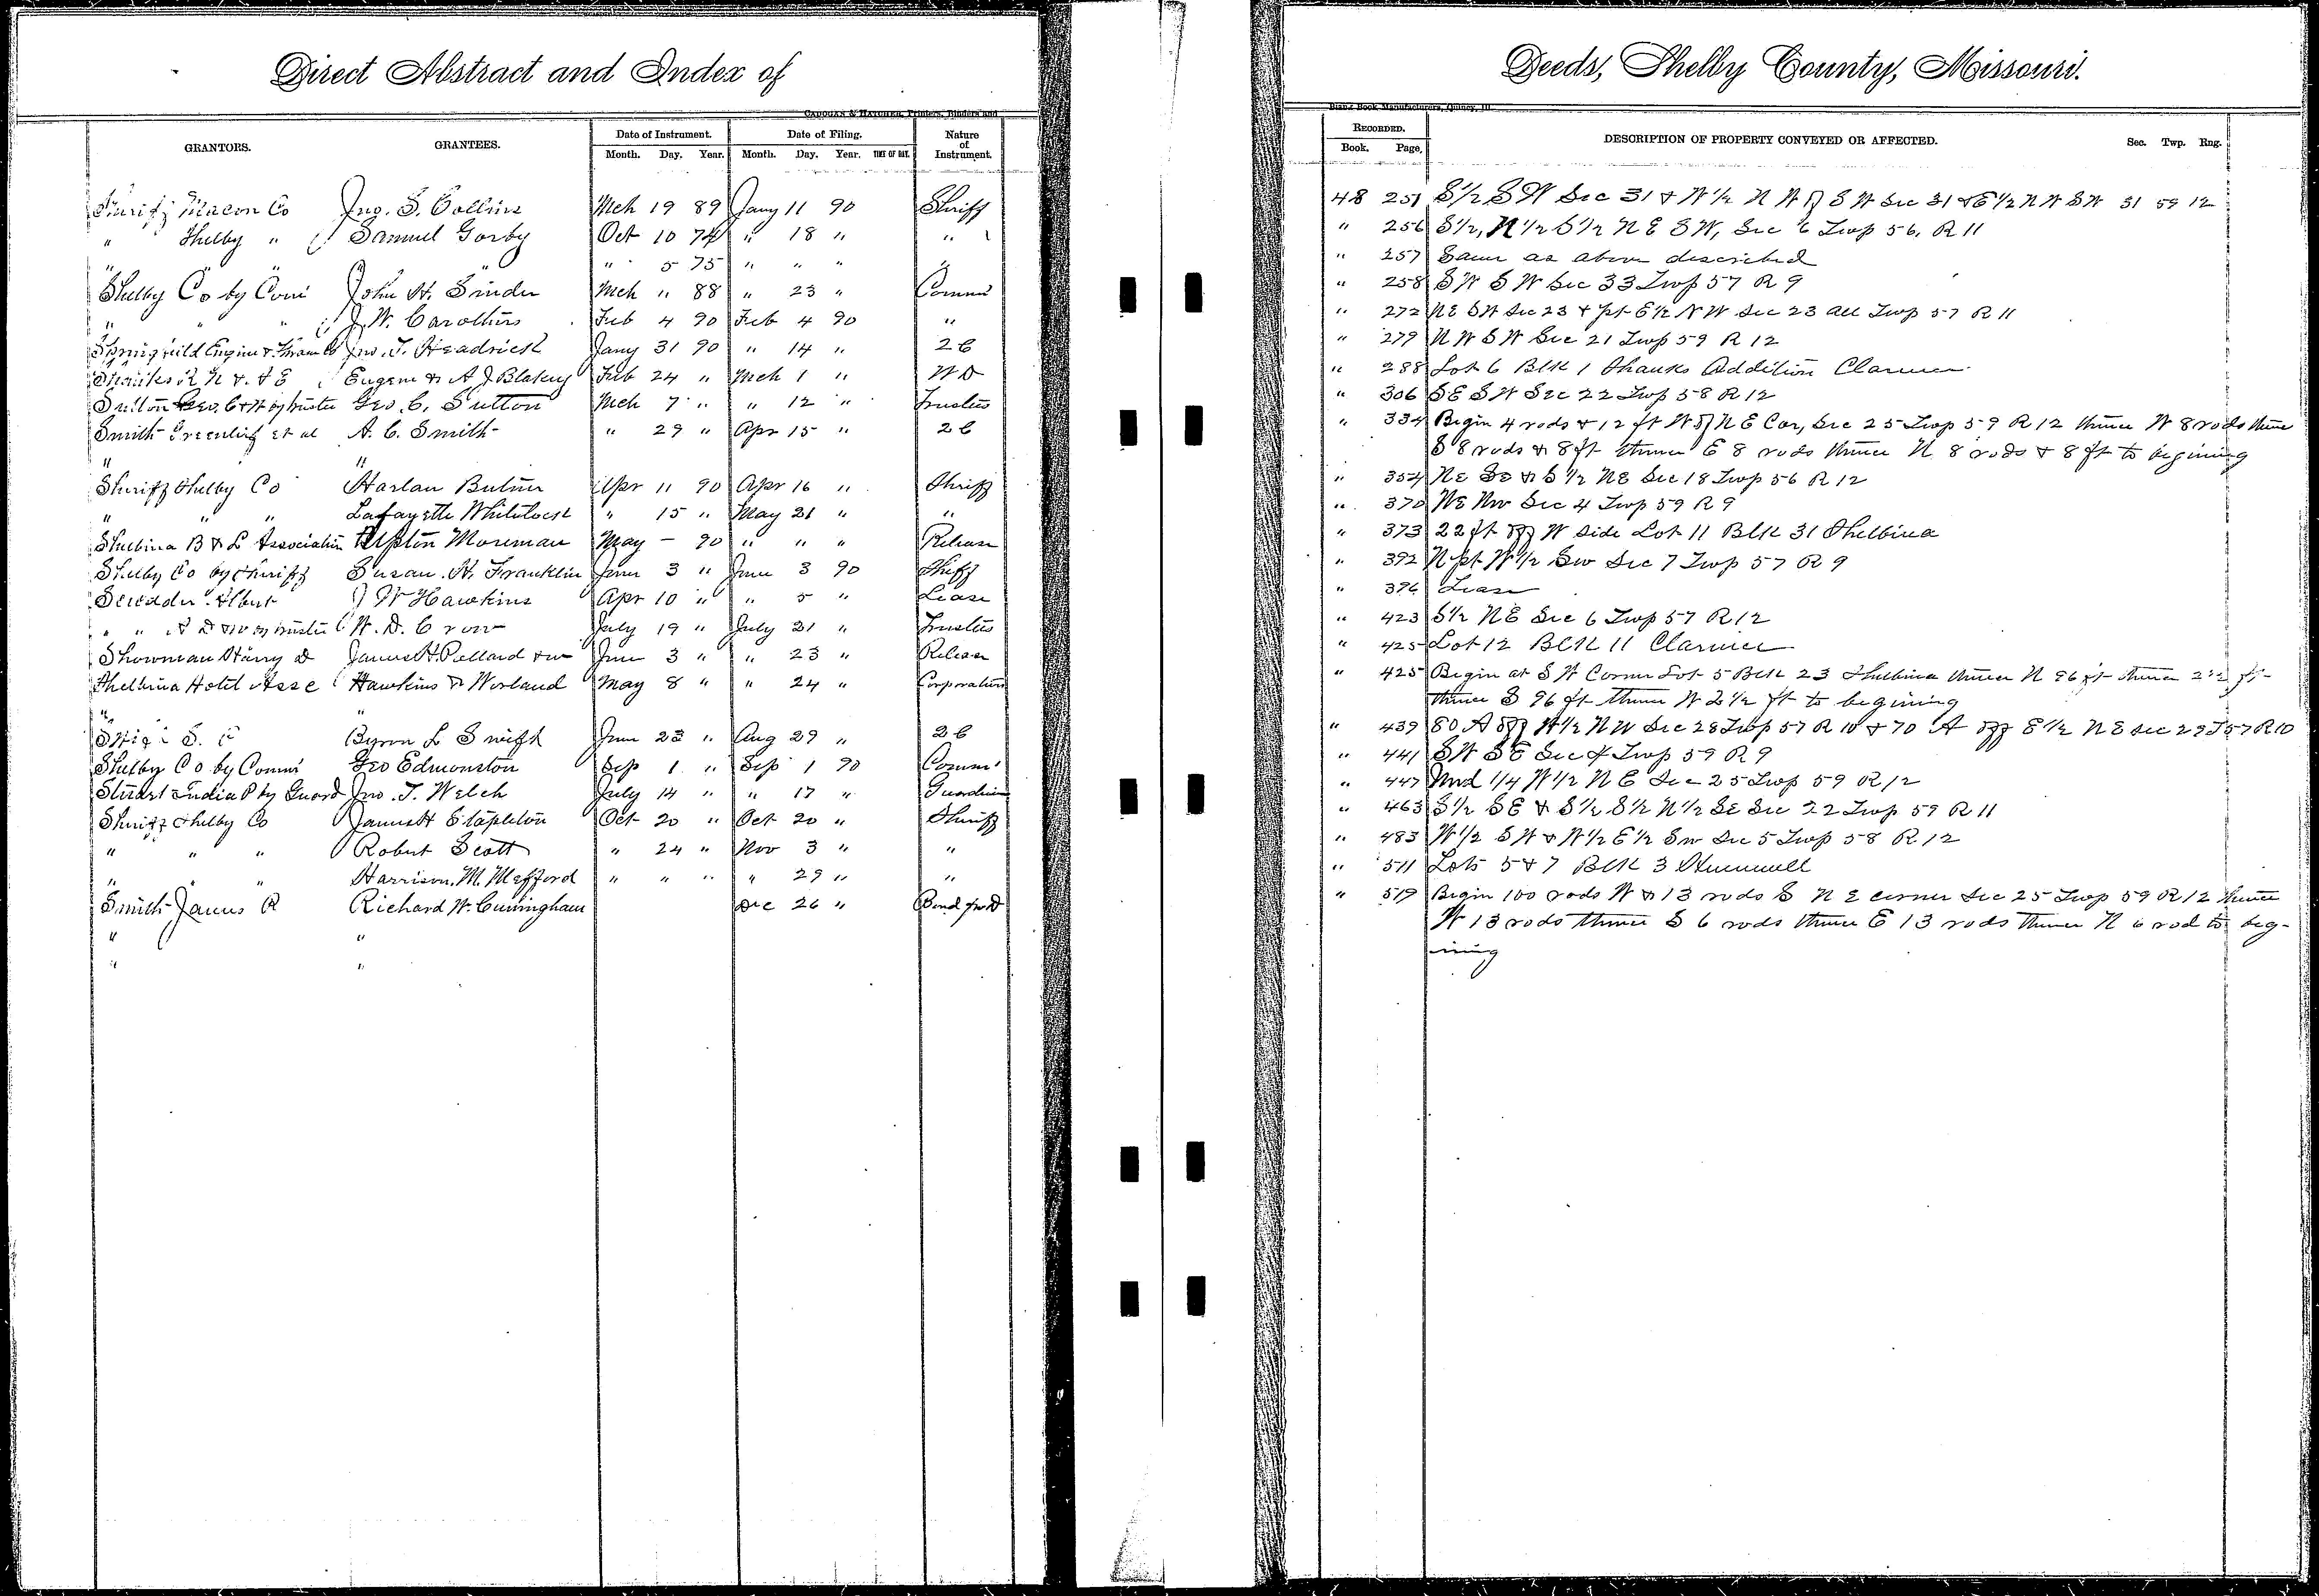 Direct Abstract and Index of
CADOGAN & HATCHER, Printers, Binders and
GRANTORS. GRANTEES. Date of Instrument. Date of Filing. Nature of Instrument.
Month. Day. Year. Month. Day. Year. TIME OF DAY.
Sheriff Macon Co Jno. S. Collins Mch 19 89 Jany 11 90 Shriff
" Shelby " Samuel Gorby Oct 10 74 " 18 " "
" " " 5 75 " " " "
Shelby Co by Com John H. Snider Mch " 88 " 23 " Comm
" " " J. W. Carothers Feb 4 90 Feb 4 90 "
Springfield Engine & Thram Co Jno. T. Headrick Jany 31 90 " 14 " 2C
Shanks R N & & E Eugene & A J Blakey Feb 24 " Mch 1 " WD
Sutton Geo. C & W by trustee Geo. C. Sutton Mch 7 " " 12 " Trustees
Smith Greenlief et al A. C. Smith " 29 " Apr 15 " 2C
" "
Sheriff Shelby Co Harlan Butner Apr 11 90 Apr 16 " Shriff
" " " Lafayette Whitelock " 15 " May 21 " "
Shelbina B & L Association Upton Moreman May – 90 " " " Release
Shelby Co by Sheriff Susan. H. Franklin June 3 " June 3 90 Shff
Scudder Albert J W Hawkins Apr 10 " " 5 " Lease
" " by trustee W. D. Crow July 19 " July 21 " Trustees
Showman Harry D James H. Pollard & w June 3 " " 23 " Release
Shelbina Hotel Asse Hawkins & Worland May 8 " " 24 " Corporation
" "
S. Byron L Swift June 23 " Aug 29 " 2C
Shelby Co by Comm Geo Edmonston Sep 1 " Sep 1 90 Comm
Stuart India P by Guard Jno. T. Welch July 14 " " 17 " Guardian
Sheriff Shelby Co James H Stapleton Oct 20 " Oct 20 " Shriff
" " " Robert Scott " 24 " Nov 3 " "
" " Harrison. M. Mefford " " " " 29 " "
Smith James R Richard W. Cunningham Dec 26 " Bond for D
" "
" "
Deeds, Shelby County, Missouri.
Blank Book Manufacturers, Quincy, Ill.
RECORDED. DESCRIPTION OF PROPERTY CONVEYED OR AFFECTED. Sec. Twp. Rng.
Book. Page.
48 251 S½ S W Sec 31 & W½ N W of S W Sec 31 & E½ N W S W 31 59 12
" 256 S½, N½ S½ N E S W, Sec 6 Twp 56. R 11
" 257 Same as above described
" 258 S W S W Sec 33 Twp 57 R 9
" 272 NE SW Sec 23 & pt E½ N W Sec 23 all Twp 57 R 11
" 279 N W S W Sec 21 Twp 59 R 12
" 288 Lot 6 Blk 1 Shanks Addition Clarence
" 306 SE S W Sec 22 Twp 58 R 12
" 334 Begin 4 rods & 12 ft W of N E Cor, Sec 25 Twp 59 R 12 thence W 8 rods thence
S 8 rods & 8 ft thence E 8 rods thence N 8 rods & 8 ft to begining
" 354 NE SE & S½ NE Sec 18 Twp 56 R 12
" 370 NE NW Sec 4 Twp 59 R 9
" 373 22 ft off W side Lot 11 Blk 31 Shelbina
" 392 N pt W½ SW Sec 7 Twp 57 R 9
" 396 Lease
" 423 S½ NE Sec 6 Twp 57 R 12
" 425 Lot 12 Blk 11 Clarence
" 425 Begin at S W Corner Lot 5 Blk 23 Shelbina thence N 96 ft thence 2½ ft
thence S 96 ft thence W 2½ ft to begining
" 439 80 A off W½ NW Sec 28 Twp 57 R 10 & 70 A off E½ NE Sec 29 T 57 R 10
" 441 SW SE Sec 4 Twp 59 R 9
" 447 Und 1/4 W½ N E Sec 25 Twp 59 R 12
" 463 S½ SE & S½ S½ N½ SE Sec 22 Twp 59 R 11
" 483 W½ S W & W½ E½ SW Sec 5 Twp 58 R 12
" 511 Lots 5 & 7 Blk 3 Hunnewell
" 519 Begin 100 rods W & 13 rods S N E corner Sec 25 Twp 59 R 12 thence
W 13 rods thence S 6 rods thence E 13 rods thence N 6 rod to beg-
ining